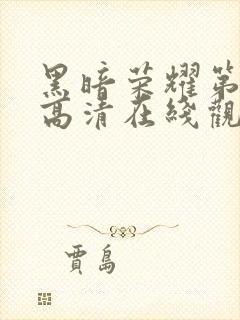 黑暗荣耀第
高清在线觀
賈島